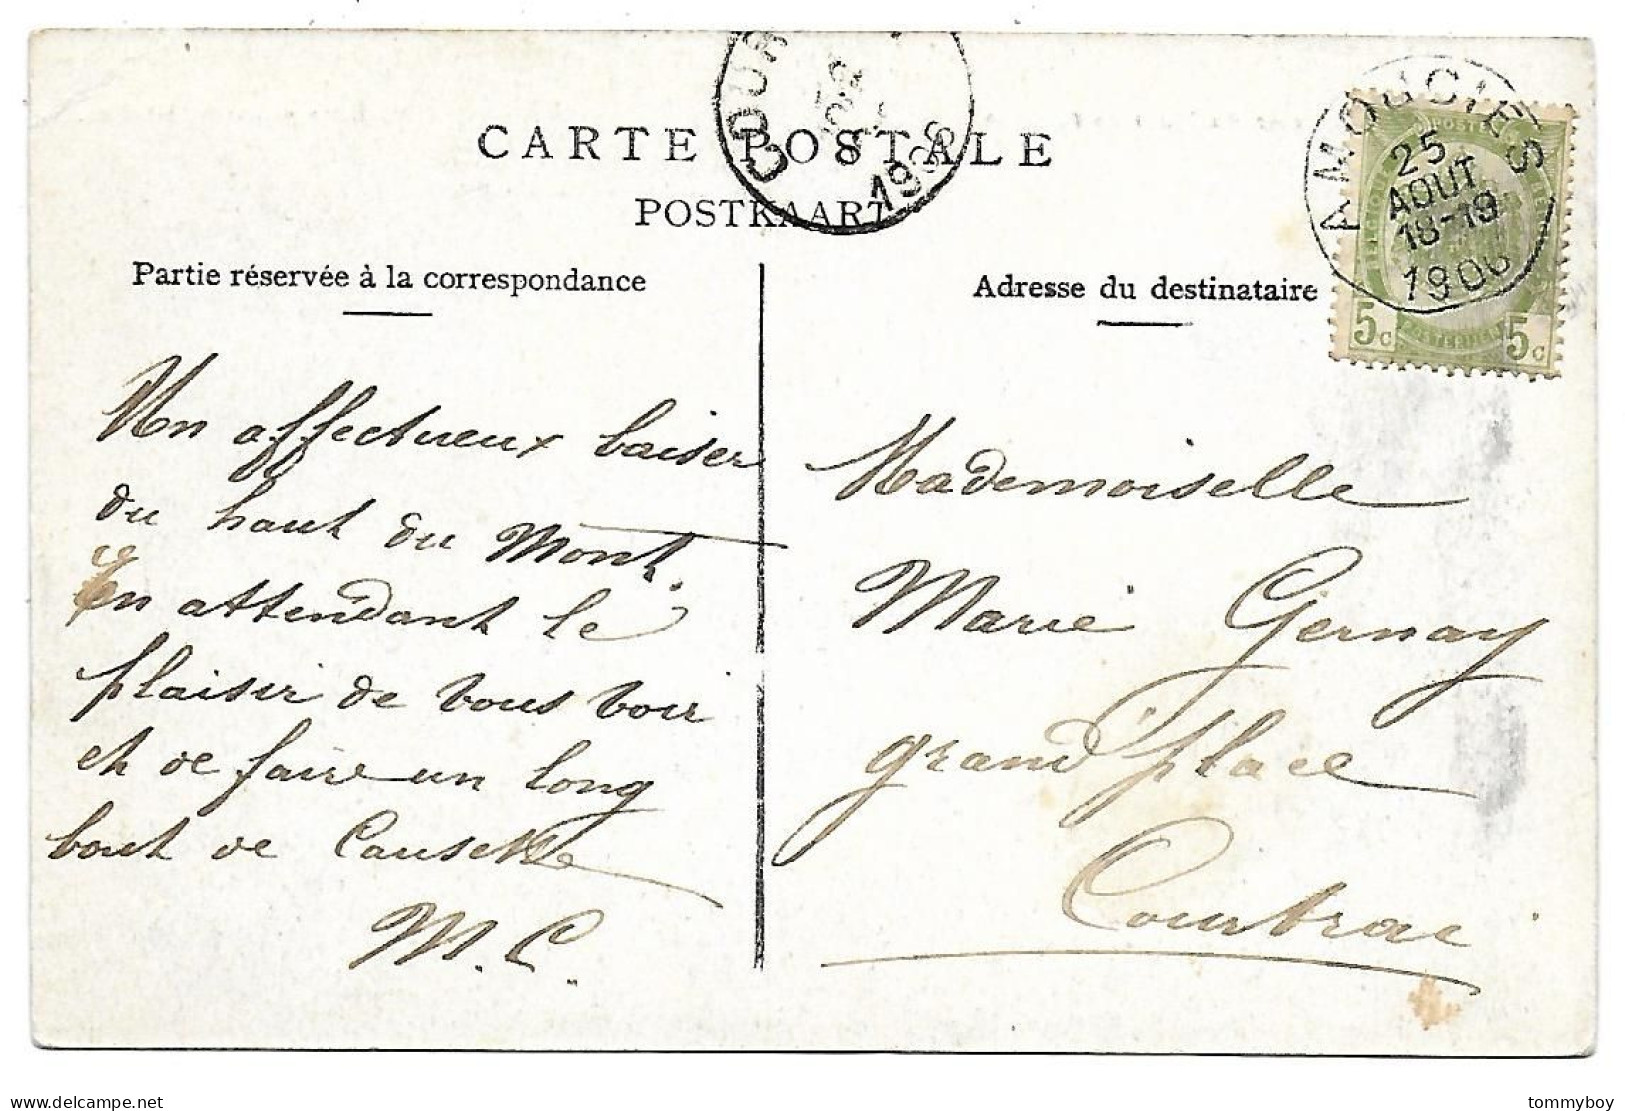 CARTE POSTALE
POSTKAART
COUR
1906
AMOUGIES
25
AOUT
18-19
1906
POSTE
5c
POSTERIJEN
5c
Partie réservée à la correspondance
Adresse du destinataire
Un affectueux baiser
du haut du Mont.
En attendant le
plaisir de vous voir
et de faire un long
bout de Causette
M. C.
Mademoiselle
Marie Gernay
grand'place
Courtrai
tommyboy.delcampe.net
tommyboy